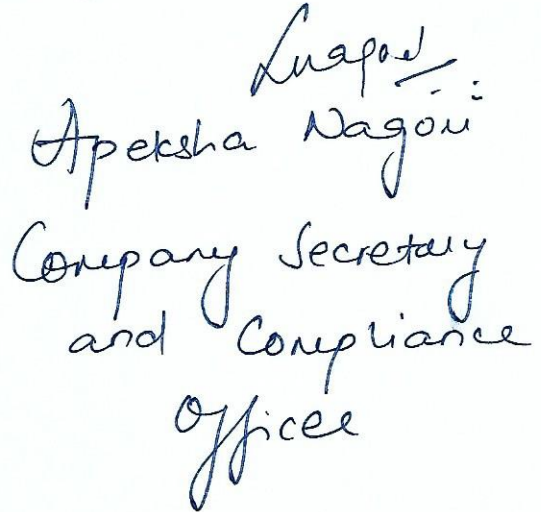 Apeksha Nagori
Company Secretary
and Compliance
Officer